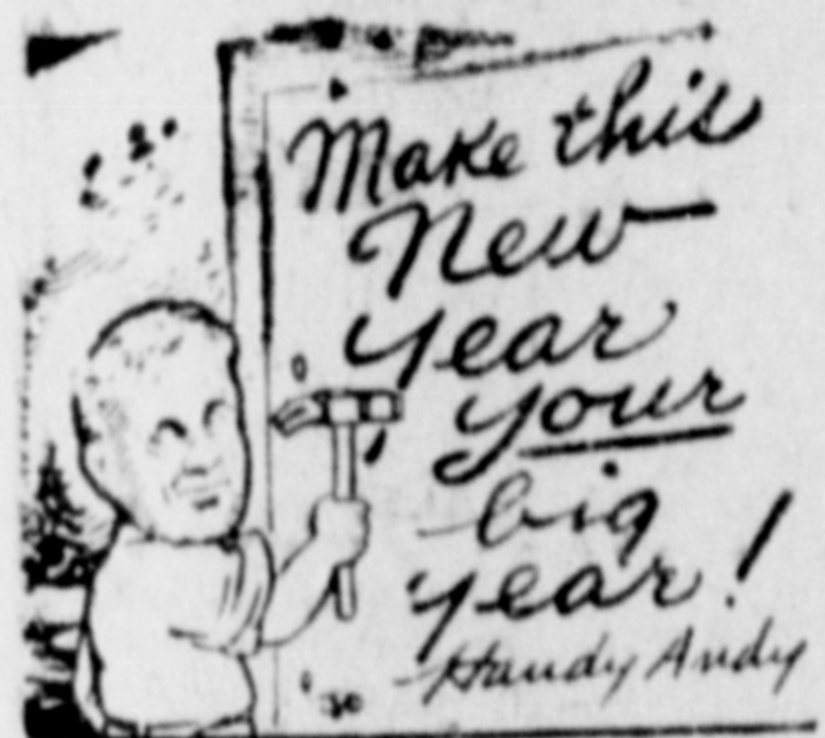 Make this
New
year
your
big
year!
Handy Andy
'30